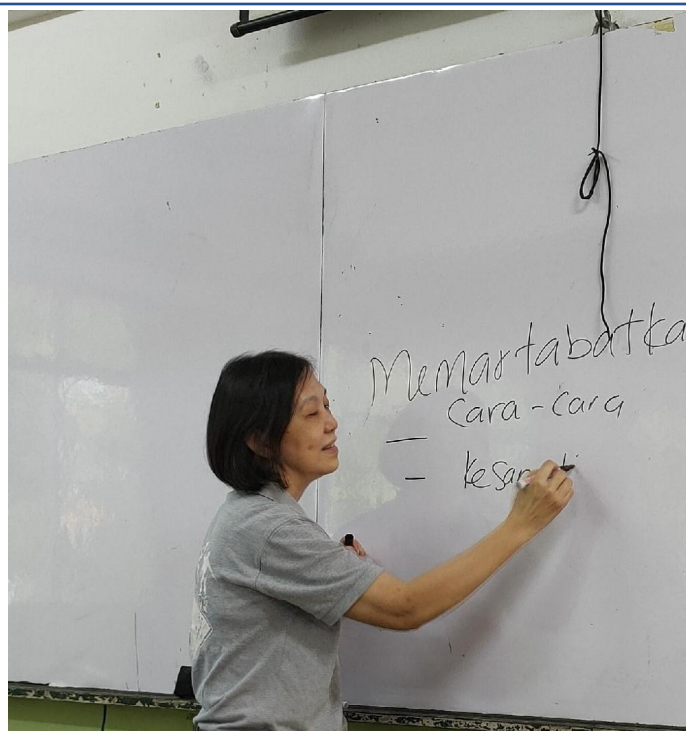 Memartabatka
= Cara-Cara
-